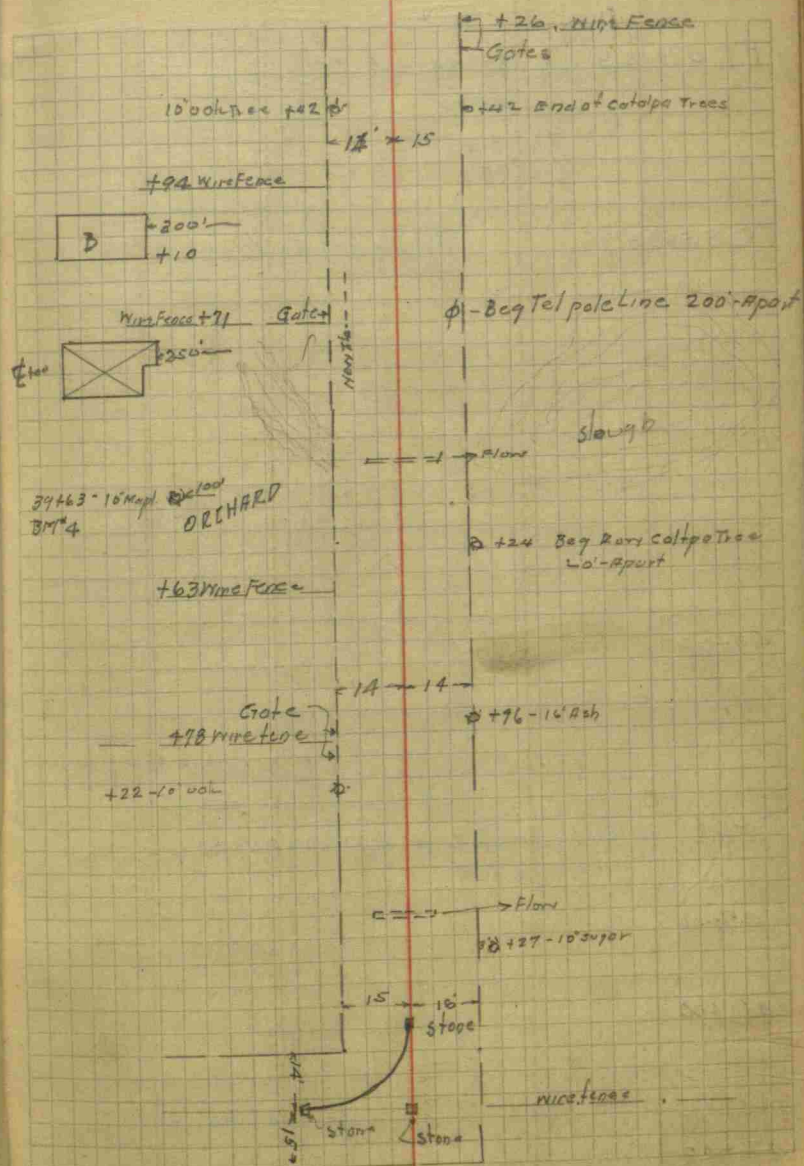 +26, Wire Fence
Gates
+42
+42 End of Catalpa Trees
15
+94 Wire Fence
200'
B
+10
Wire Fence +71 Gate
-Beg Tel pole Line 200'-Apart
250'
slough
Flow
39+63 - 10" Mapl 100'
BM#4
ORCHARD
+24 Beg Row Catlpa Tree
20'-Apart
+63 Wire Fence
14 14
Gate
+78 Wire fene
+96 - 16" Ash
+22 - 10"
Flow
+27 - 10" sugar
15 16'
Stone
14'
wire fence
15
stone
stone